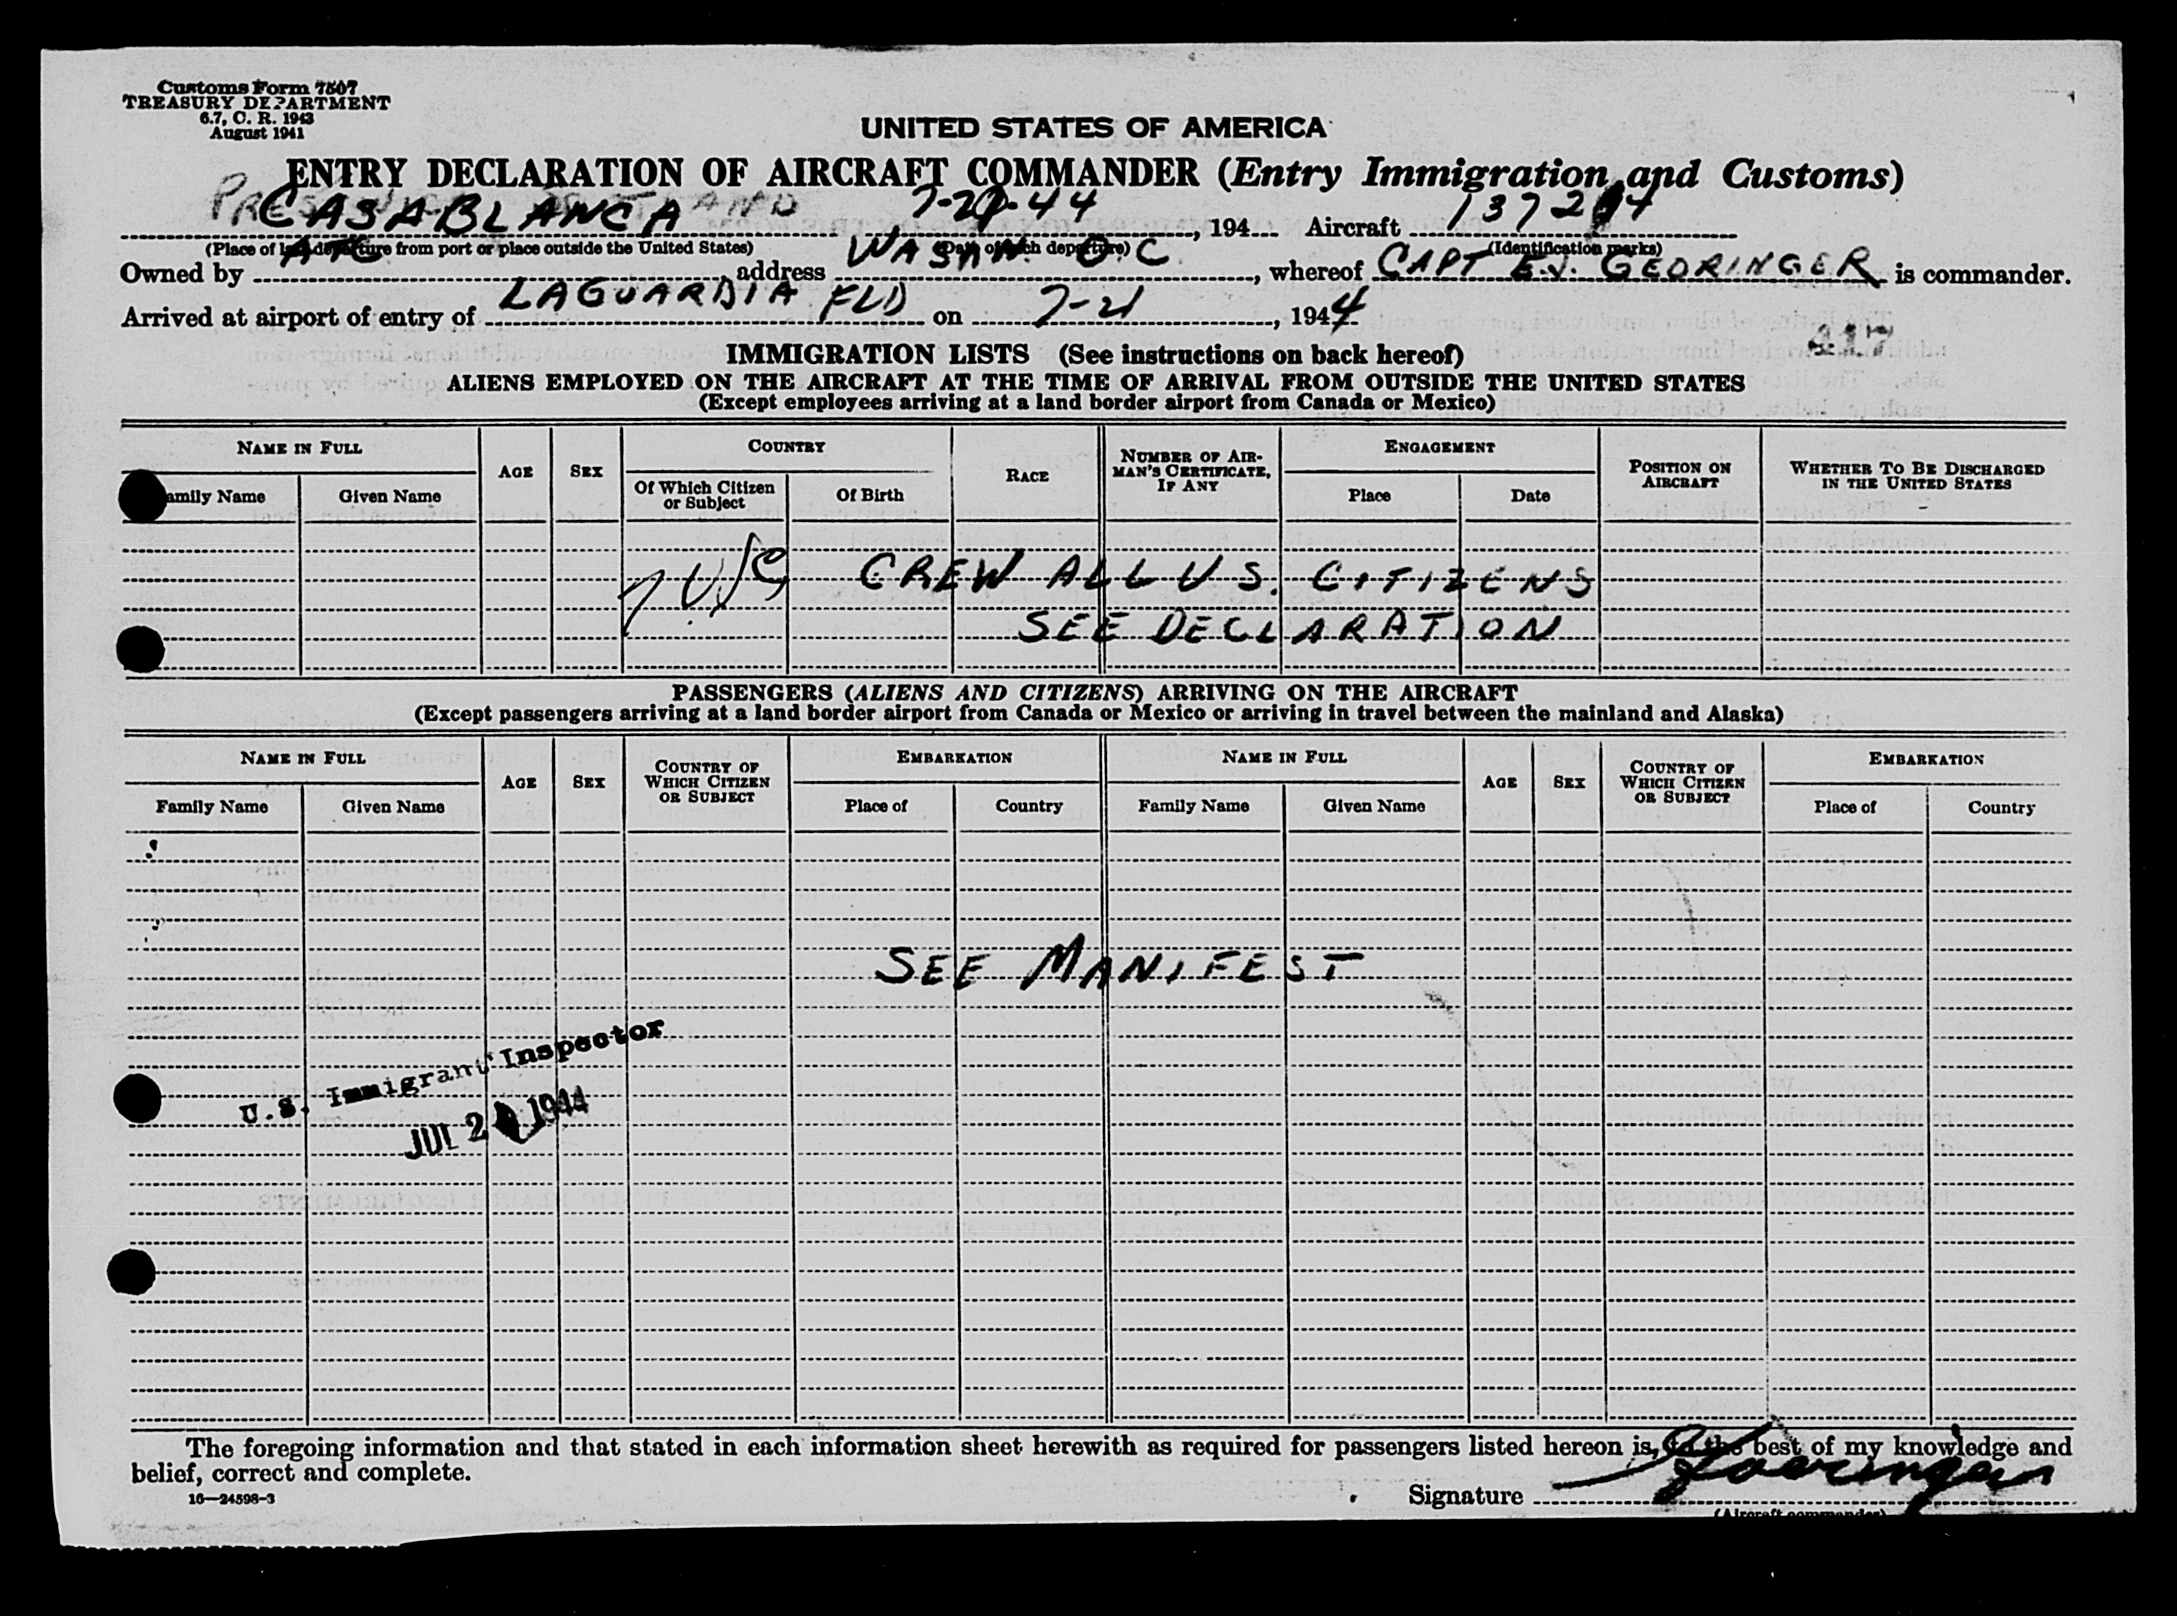 Customs Form 7507
TREASURY DEPARTMENT
6.7, C. R. 1943
August 1941
UNITED STATES OF AMERICA
ENTRY DECLARATION OF AIRCRAFT COMMANDER (Entry Immigration and Customs)
CASABLANCA 44, 194 Aircraft
(Place of last departure from port or place outside the United States) (Date of such departure) (Identification marks)
Owned by ATC, address WASHN. D C, whereof CAPT E.J. GEORINGER is commander.
Arrived at airport of entry of LAGUARDIA FLD on 7-21, 1944
417
IMMIGRATION LISTS (See instructions on back hereof)
ALIENS EMPLOYED ON THE AIRCRAFT AT THE TIME OF ARRIVAL FROM OUTSIDE THE UNITED STATES
(Except employees arriving at a land border airport from Canada or Mexico)
NAME IN FULL AGE SEX COUNTRY RACE NUMBER OF AIRMAN'S CERTIFICATE, IF ANY ENGAGEMENT POSITION ON AIRCRAFT WHETHER TO BE DISCHARGED IN THE UNITED STATES
Family Name Given Name Of Which Citizen or Subject Of Birth Place Date
CREW ALL U S. CITIZENS
SEE DECLARATION
PASSENGERS (ALIENS AND CITIZENS) ARRIVING ON THE AIRCRAFT
(Except passengers arriving at a land border airport from Canada or Mexico or arriving in travel between the mainland and Alaska)
NAME IN FULL AGE SEX COUNTRY OF WHICH CITIZEN OR SUBJECT EMBARKATION NAME IN FULL AGE SEX COUNTRY OF WHICH CITIZEN OR SUBJECT EMBARKATION
Family Name Given Name Place of Country Family Name Given Name Place of Country
SEE MANIFEST
U.S. Immigrant Inspector
JUL 2 1944
The foregoing information and that stated in each information sheet herewith as required for passengers listed hereon is, to the best of my knowledge and
belief, correct and complete.
16—24598-3
Signature Goeringer
(Aircraft commander)